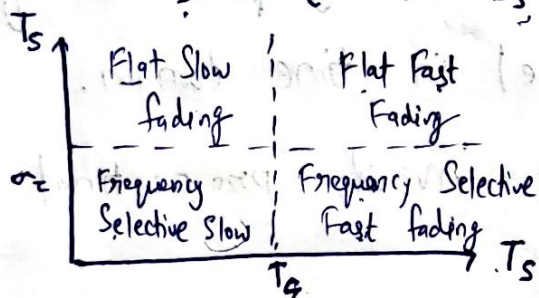 Ts
Flat Slow
fading
Flat Fast
Fading
σ꜀
Frequency
Selective Slow
Frequency Selective
Fast fading
Ts